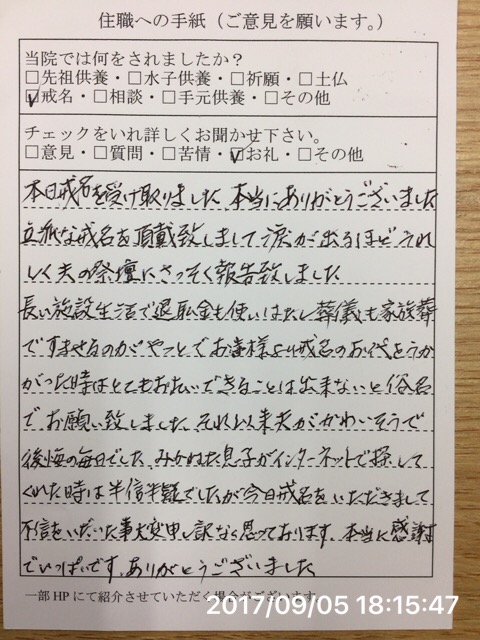 住職への手紙（ご意見を願います。）
当院では何をされましたか？
□先祖供養・□水子供養・□祈願・□土仏
☑戒名・□相談・□手元供養・□その他
チェックをいれ詳しくお聞かせ下さい。
□意見・□質問・□苦情・☑お礼・□その他
本日戒名を受け取りました 本当にありがとうございました
立派な戒名を頂戴致しまして涙が出るほどうれ
しく夫の祭壇にさっそく報告致しました
長い施設生活で退職金も使いはたし葬儀も家族葬
ですませるのがやっとでお寺様より戒名のお代をうか
がった時はとてもお払いできることは出来ないと俗名
でお願い致しました それ以来夫がかわいそうで
後悔の毎日でした みかねた息子がインターネットで探して
くれた時は半信半疑でしたが今日戒名をいただきまして
不信をいだいた事大変申し訳なく思っております。本当に感謝
でいっぱいです。ありがとうございました
一部HPにて紹介させていただく場合がございます。
2017/09/05 18:15:47